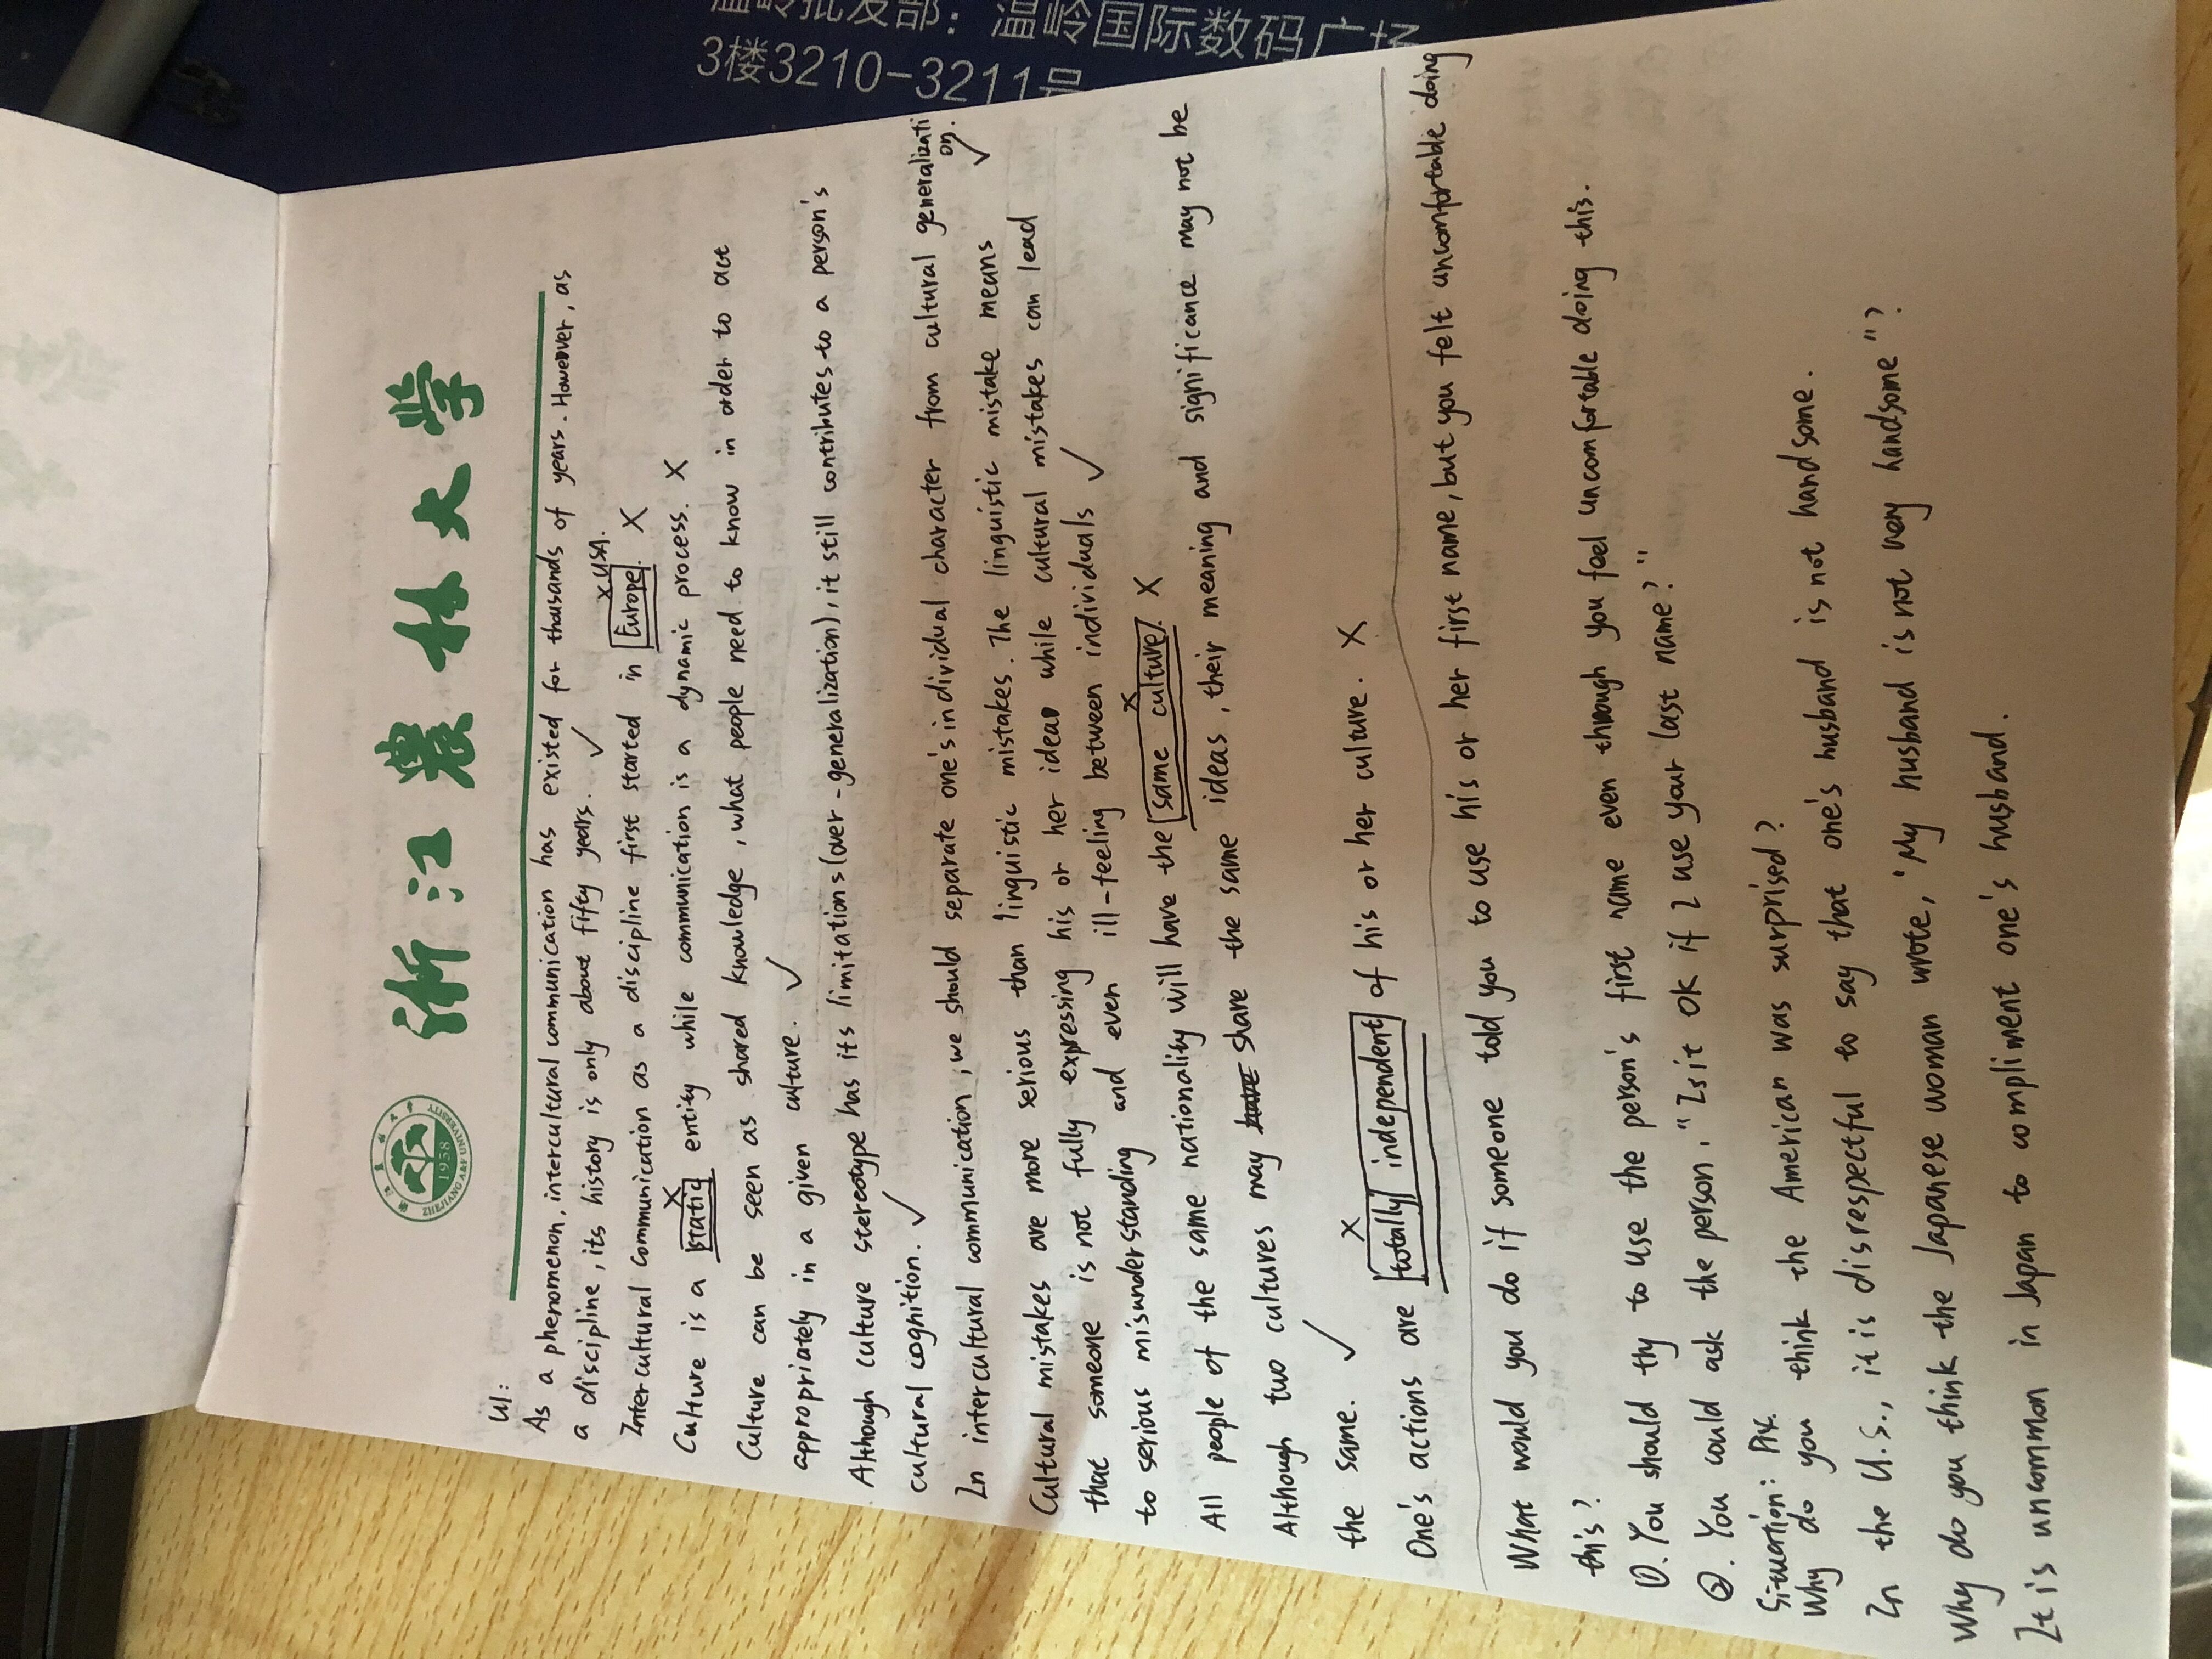 温岭批发部：温岭国际数码广场
3楼3210-3211号
浙江農林大学
1958
ZHEJIANG A&F UNIVERSITY
U1:
As a phenomenon, intercultural communication has existed for thousands of years. However, as
a discipline, its history is only about fifty years. ✓
x USA.
Intercultural communication as a discipline first started in Europe. X
x
Culture is a static entity while communication is a dynamic process. X
Culture can be seen as shared knowledge, what people need to know in order to act
appropriately in a given culture. ✓
Although culture stereotype has its limitations (over-generalization), it still contributes to a person's
cultural cognition. ✓
In intercultural communication, we should separate one's individual character from cultural generalizati
on. ✓
Cultural mistakes are more serious than linguistic mistakes. The linguistic mistake means
that someone is not fully expressing his or her idea while cultural mistakes can lead
to serious misunderstanding and even ill-feeling between individuals ✓
x
All people of the same nationality will have the same culture. X
Although two cultures may share the same ideas, their meaning and significance may not be
the same. ✓
x
One's actions are totally independent of his or her culture. X
What would you do if someone told you to use his or her first name, but you felt uncomfortable doing
this?
①. You should try to use the person's first name even through you feel uncomfortable doing this.
②. You could ask the person, "Is it ok if I use your last name?"
Situation: P14.
Why do you think the American was surprised?
In the U.S., it is disrespectful to say that one's husband is not handsome.
Why do you think the Japanese woman wrote, "My husband is not very handsome"?
It is uncommon in Japan to compliment one's husband.